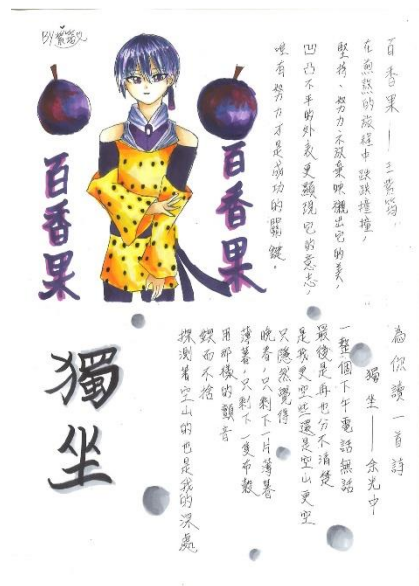 BY 紫
百香果
百香果
百香果——王紫筠
在煎熬的旅程中跌跌撞撞,
堅持、努力、不放棄映襯出它的美,
凹凸不平的外表更顯現它的意志,
唯有努力才是成功的關鍵。
為你讀一首詩
獨坐——余光中
一整個下午電話無話
最後是再也分不清楚
是我更空些還是空山更空
只隱然覺得
晚春,只剩下一片薄暮
薄暮,只剩下一隻布穀
用那樣的顫音
鍥而不捨
探測著空山的也是我的深處
獨坐